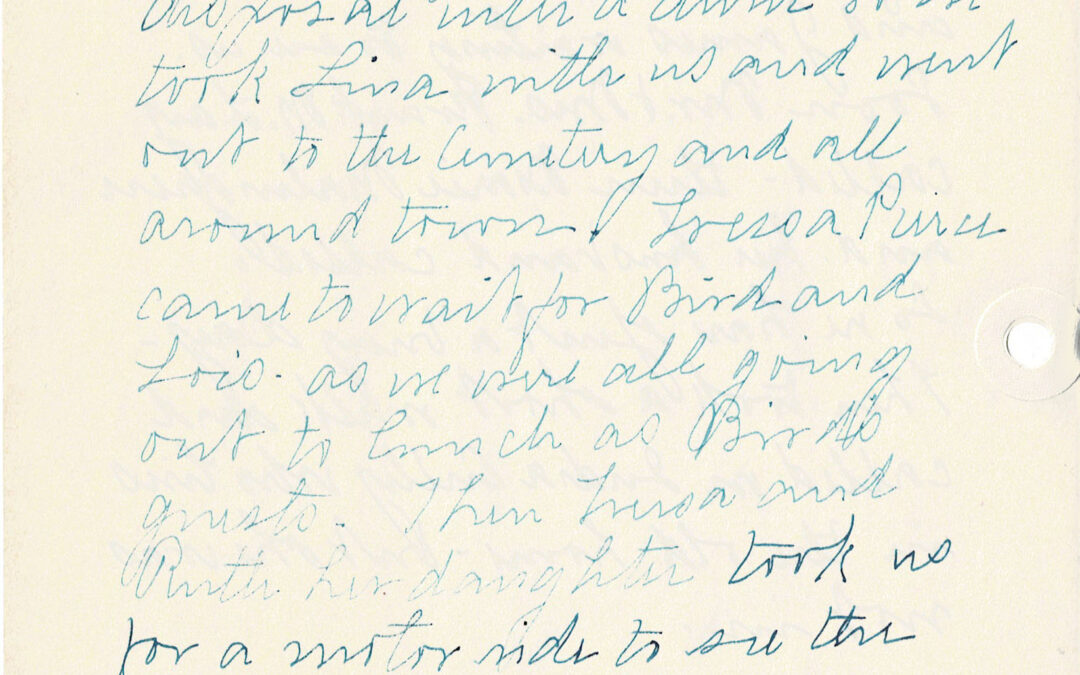 disposal with a driver so we
took Lina with us and went
out to the Cemetery and all
around town. Tressa Pierce
came to wait for Bird and
Lois. as we were all going
out to lunch as Bird's
guests. Then Tressa and
Ruth her daughter took us
for a motor ride to see the